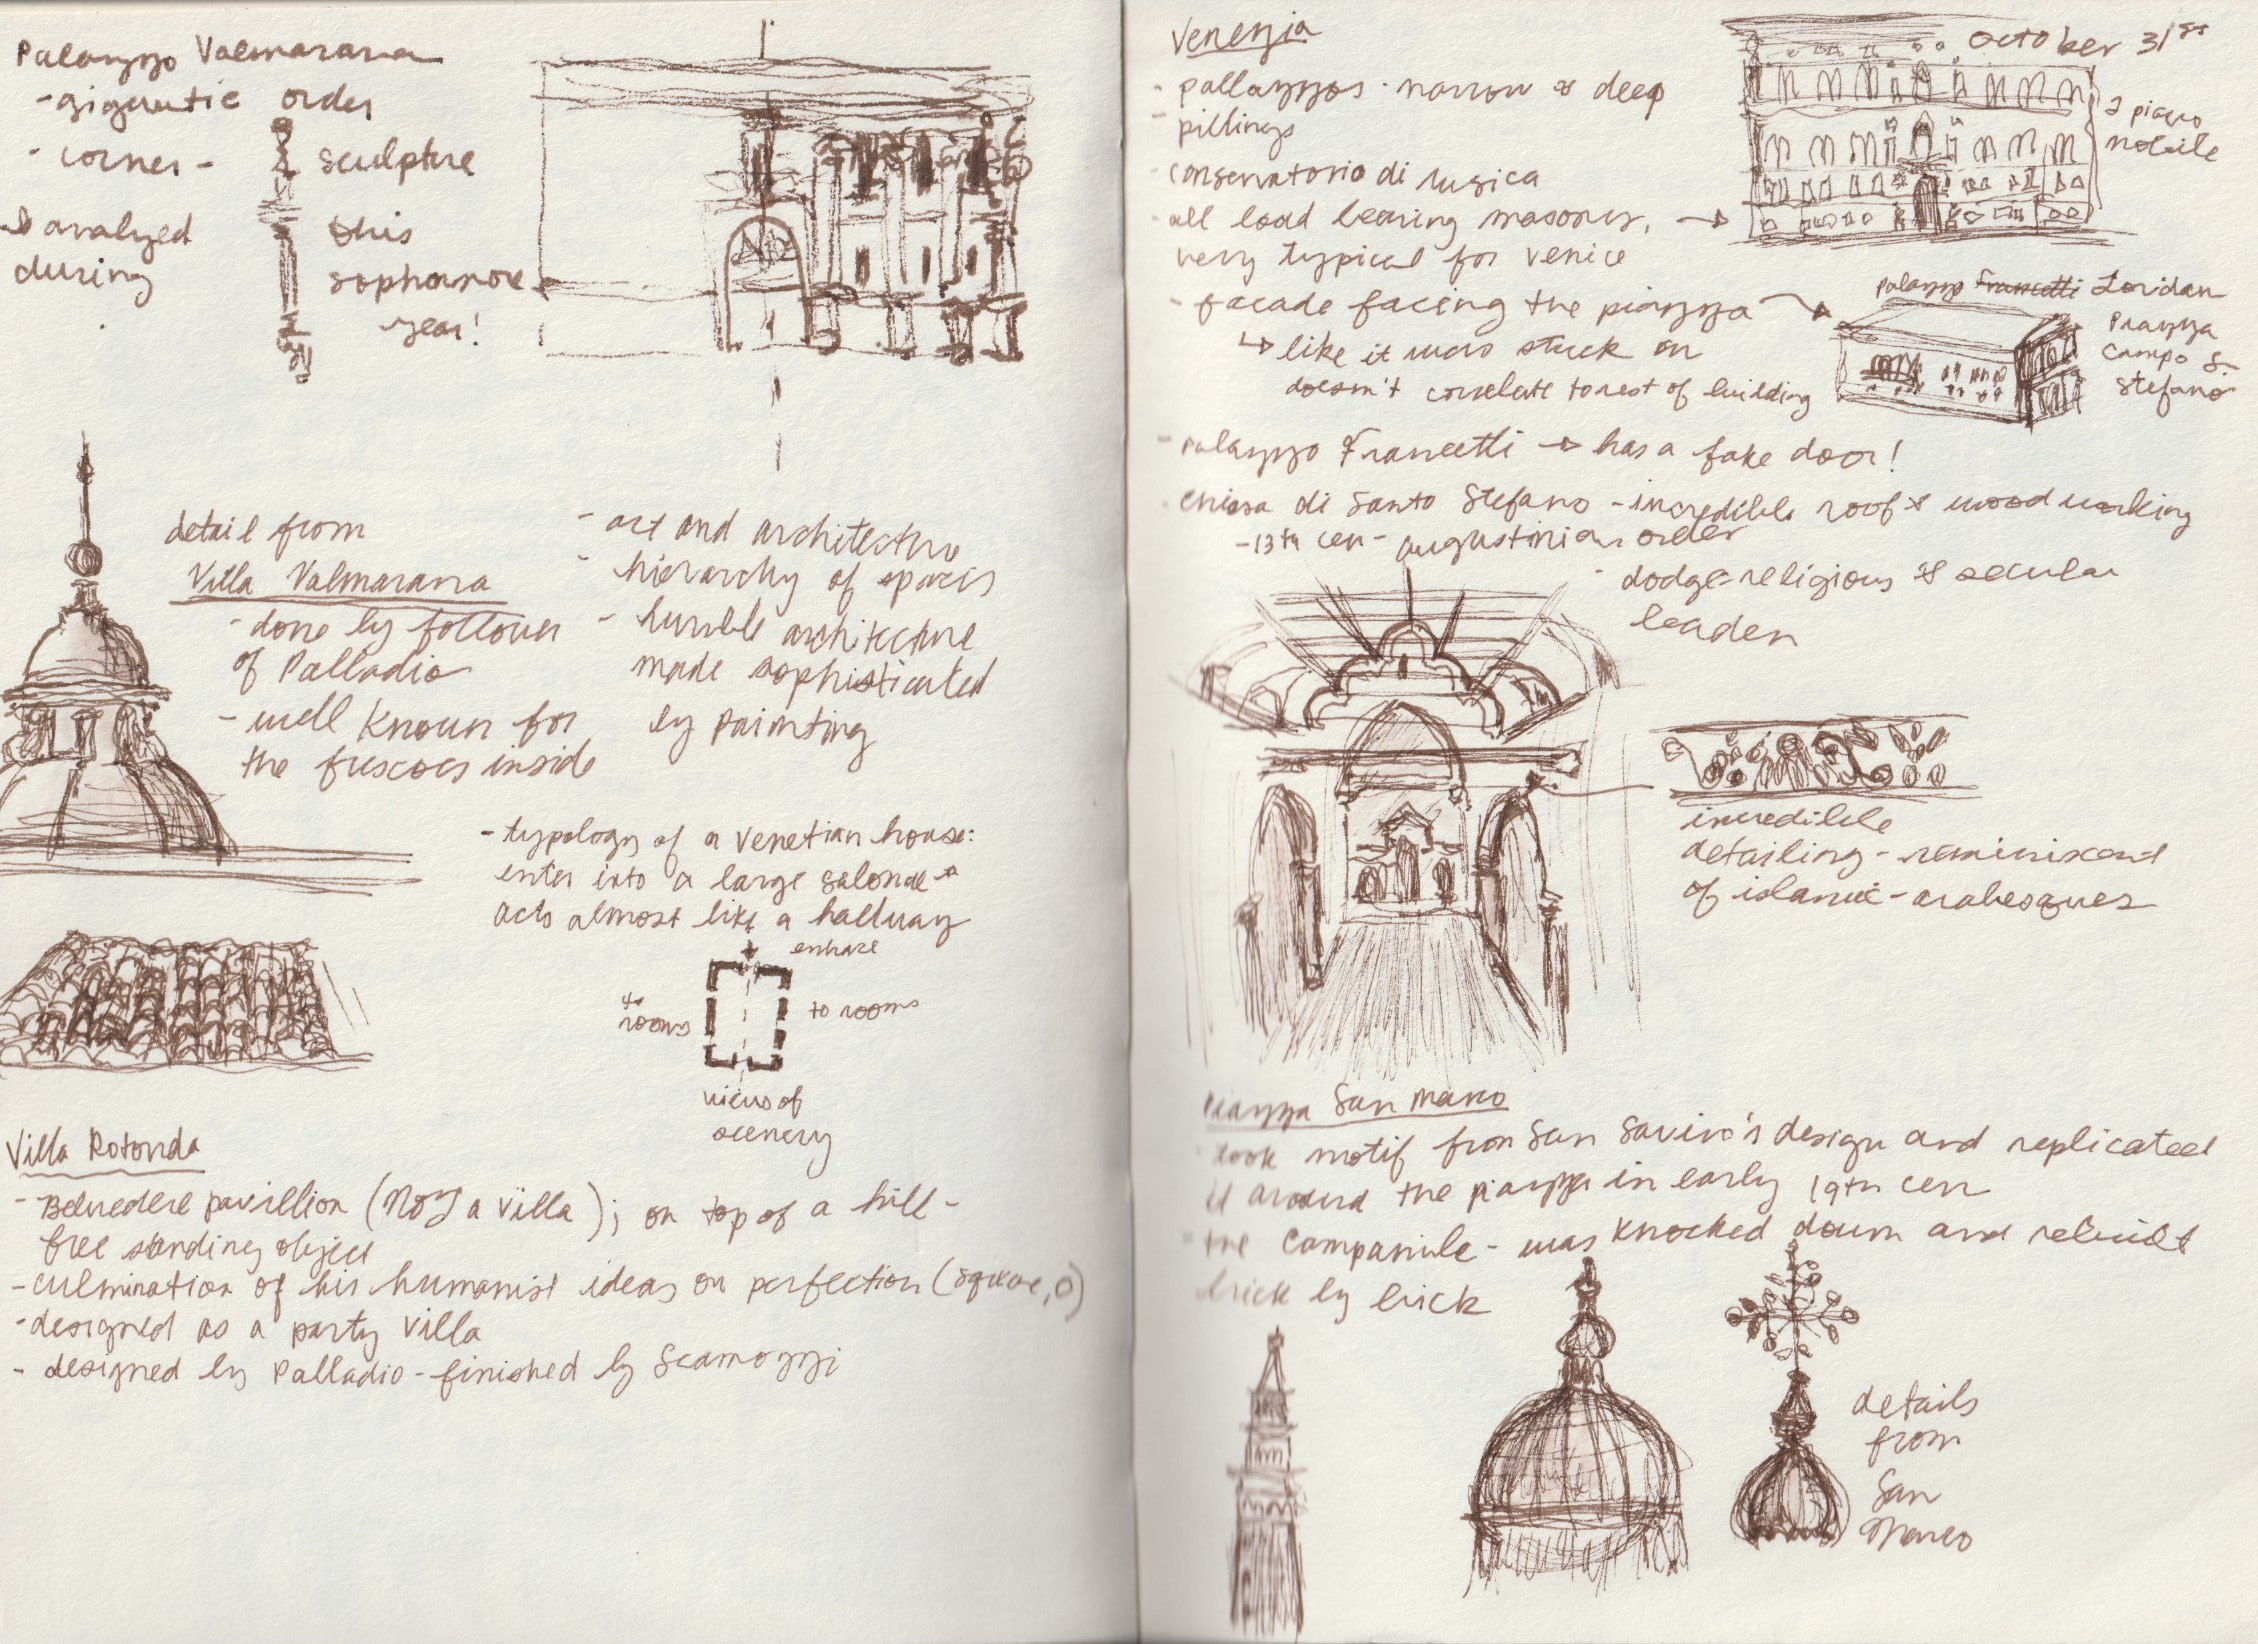 Palazzo Valmarana
- gigantic order
- corner - sculpture
↳ analyzed this
during sophomore
year!
detail from
Villa Valmarana
- done by follower
of Palladio
- well known for
the frescoes inside
- art and architecture
- hierarchy of spaces
- humble architecture
made sophisticated
by painting
- typology of a venetian house:
enter into a large salone →
acts almost like a hallway
entrace
to
rooms
to rooms
views of
scenery
Villa Rotonda
- Belvedere pavillion (NOT a villa); on top of a hill -
free standing object
- culmination of his humanist ideas on perfection (square, O)
- designed as a party villa
- designed by Palladio - finished by Scamozzi
Venezia
October 31st
- pallazzos - narrow & deep
- pillings
- conservatorio di musica
- all load bearing masonry, →
very typical for venice
2 piano
nobile
- facade facing the piazza →
↳ like it was stuck on
doesn't correlate to rest of building
palazzo Francetti Loridan
Piazza
Campo S.
Stefano
- Palazzo Francetti → has a fake door!
- Chiesa di Santo Stefano - incredible roof & woodworking
- 13th cen - augustinian order
- dodge - religious & secular
leader
incredible
detailing - reminiscent
of islamic - arabesques
Piazza San Marco
- took motif from San Savino's design and replicated
it around the piazza in early 19th cen
- the Campanile - was knocked down and rebuilt
brick by brick
details
from
San
Marco